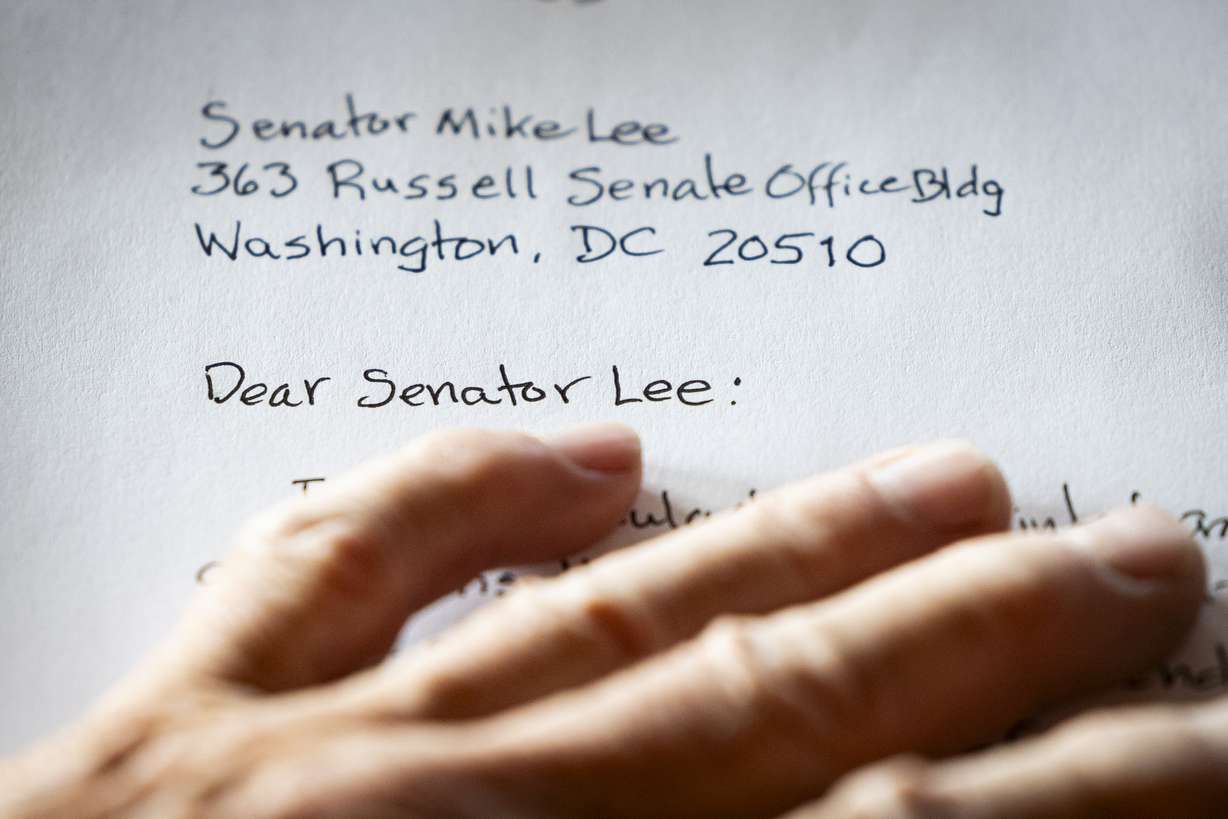 Senator Mike Lee
363 Russell Senate Office Bldg
Washington, DC 20510
Dear Senator Lee: